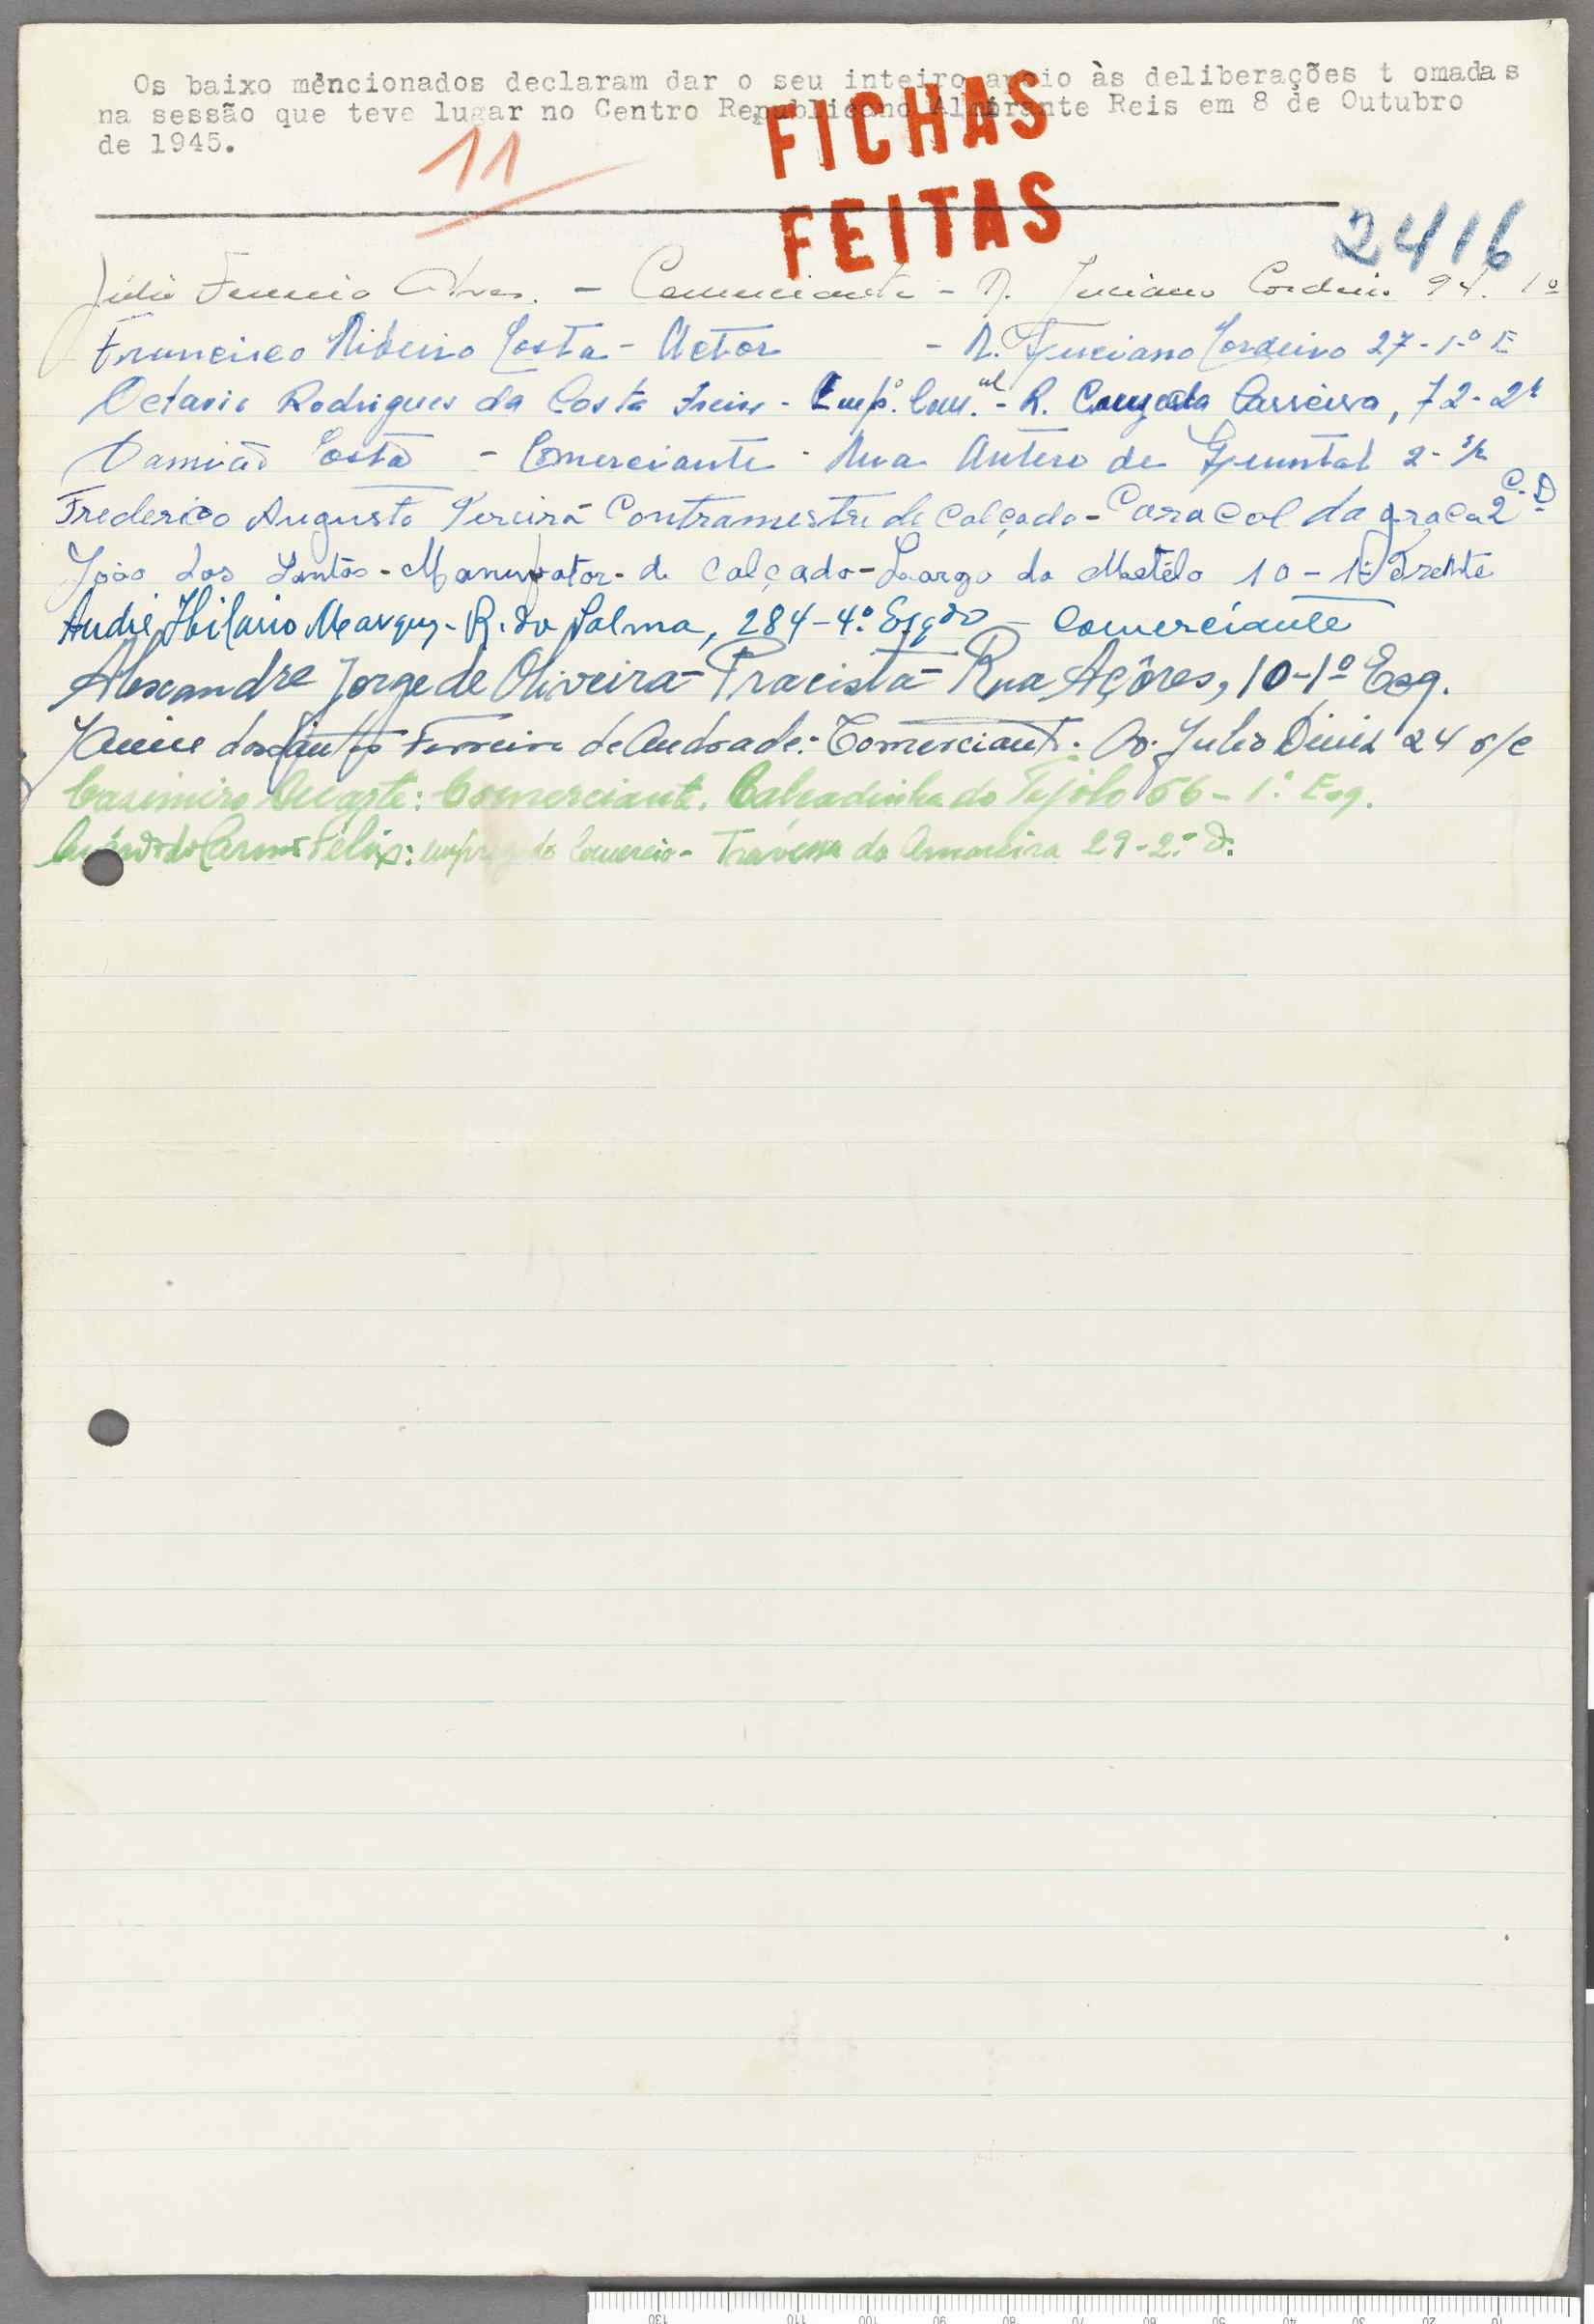 Os baixo mencionados declaram dar o seu inteiro apoio às deliberações t omadas
na sessão que teve lugar no Centro Republicano Almirante Reis em 8 de Outubro
de 1945.
11
FICHAS
FEITAS
2416
Júlio Ferreira Alves. - Comerciante - R. Luciano Cordeiro 94. 1º
Francisco Ribeiro Costa - Actor - R. Luciano Cordeiro 27-1-º E
Octavio Rodrigues da Costa Freire - Empº. Com.al - R. da Carreira, 72-2º
Damião Costa - Comerciante - Rua Antero de Quental 2-
Frederico Augusto Pereira Contramestre de Calçado - Caracol da graça 2 C. D
João dos Santos - Manufator - de Calçado - Largo do Mastélo 10-1º Frente
André Hilario Marques - R. da Palma, 284-4º. Esqdo - Comerciante
Alexandre Jorge de Oliveira - Pracista - Rua Açôres, 10-1º Esq.
Jaime dos Santos Ferreira de Andrade - Comerciante. Av. Julio Diniz 24 r/c
Casimiro Duarte: Comerciante. Calçadinha do Tijolo 56-1º. Esq.
do Carmo Félix: empregado Comercio - Travessa da Amoreira 29-2.º D.